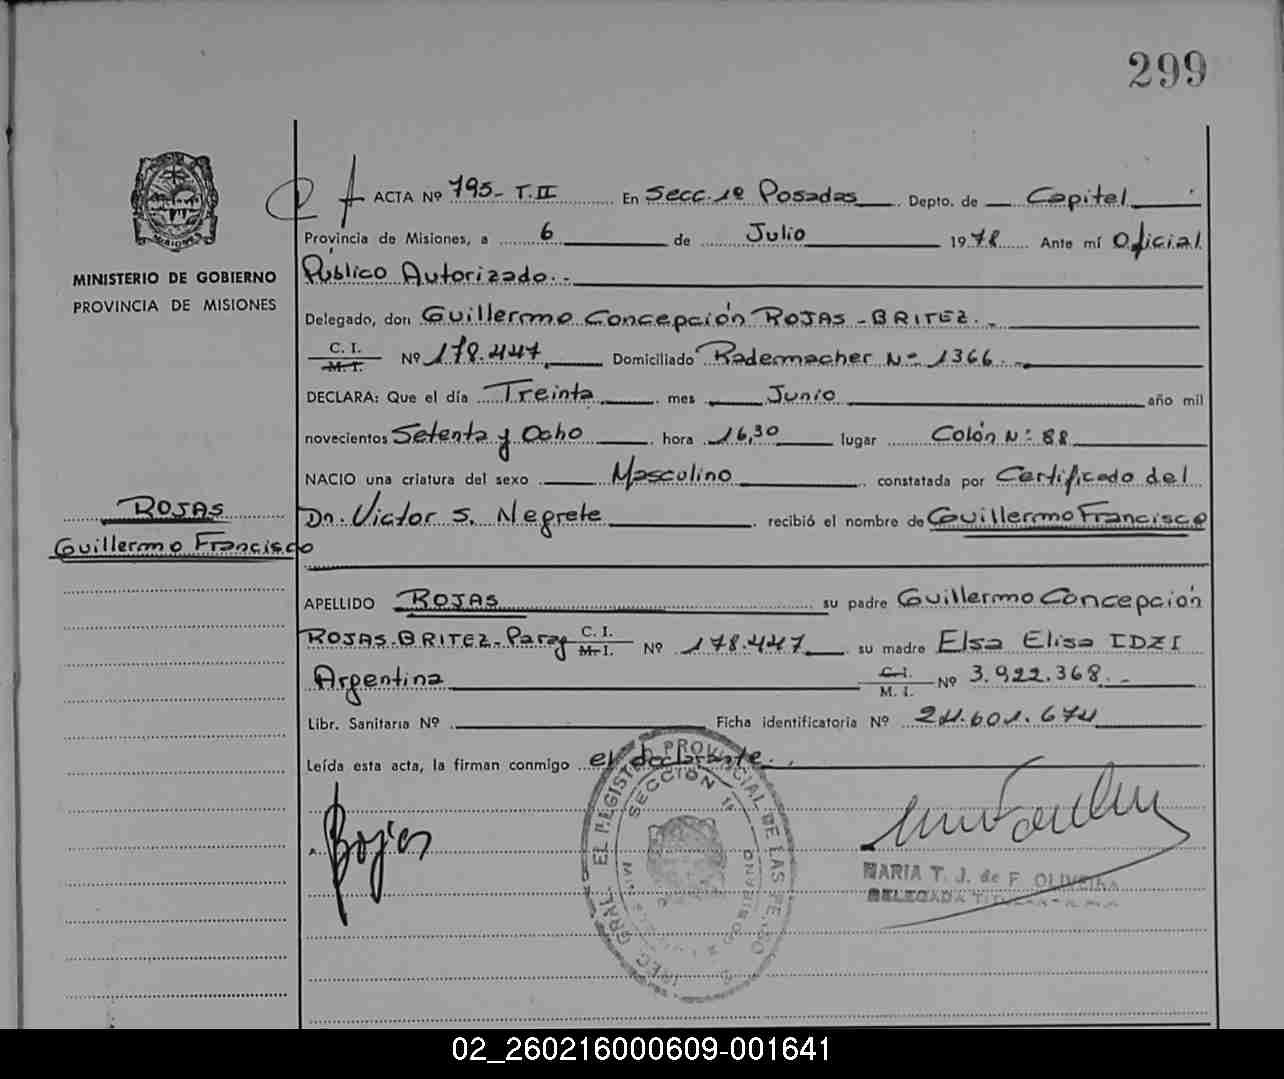 299
ACTA Nº 795- T.II En Secc. 1º Posadas Depto. de Capital
Provincia de Misiones, a 6 de Julio 1978 Ante mí Oficial
Público Autorizado.-
MINISTERIO DE GOBIERNO
PROVINCIA DE MISIONES
Delegado, don Guillermo Concepción ROJAS-BRITEZ.-
C. I.
M. I.
Nº 178.447 Domiciliado Rademacher Nº 1366.-
DECLARA: Que el día Treinta mes Junio año mil
novecientos Setenta y Ocho hora 16,30 lugar Colón Nº 88
NACIO una criatura del sexo Masculino constatada por Certificado del
Dr. Victor S. Negrete recibió el nombre de Guillermo Francisco
ROJAS
Guillermo Francisco
APELLIDO ROJAS su padre Guillermo Concepción
ROJAS-BRITEZ- Parag C. I. M. I. Nº 178.447 su madre Elsa Elisa IDZI
Argentina C. I. M. I. Nº 3.922.368.-
Libr. Sanitaria Nº Ficha identificatoria Nº 24.601.674
Leída esta acta, la firman conmigo el declarante.
REGISTRO PROVINCIAL DE LAS
SECCION 1ª
MARIA T. J. de F. OLIVEIRA
DELEGADA
02_260216000609-001641